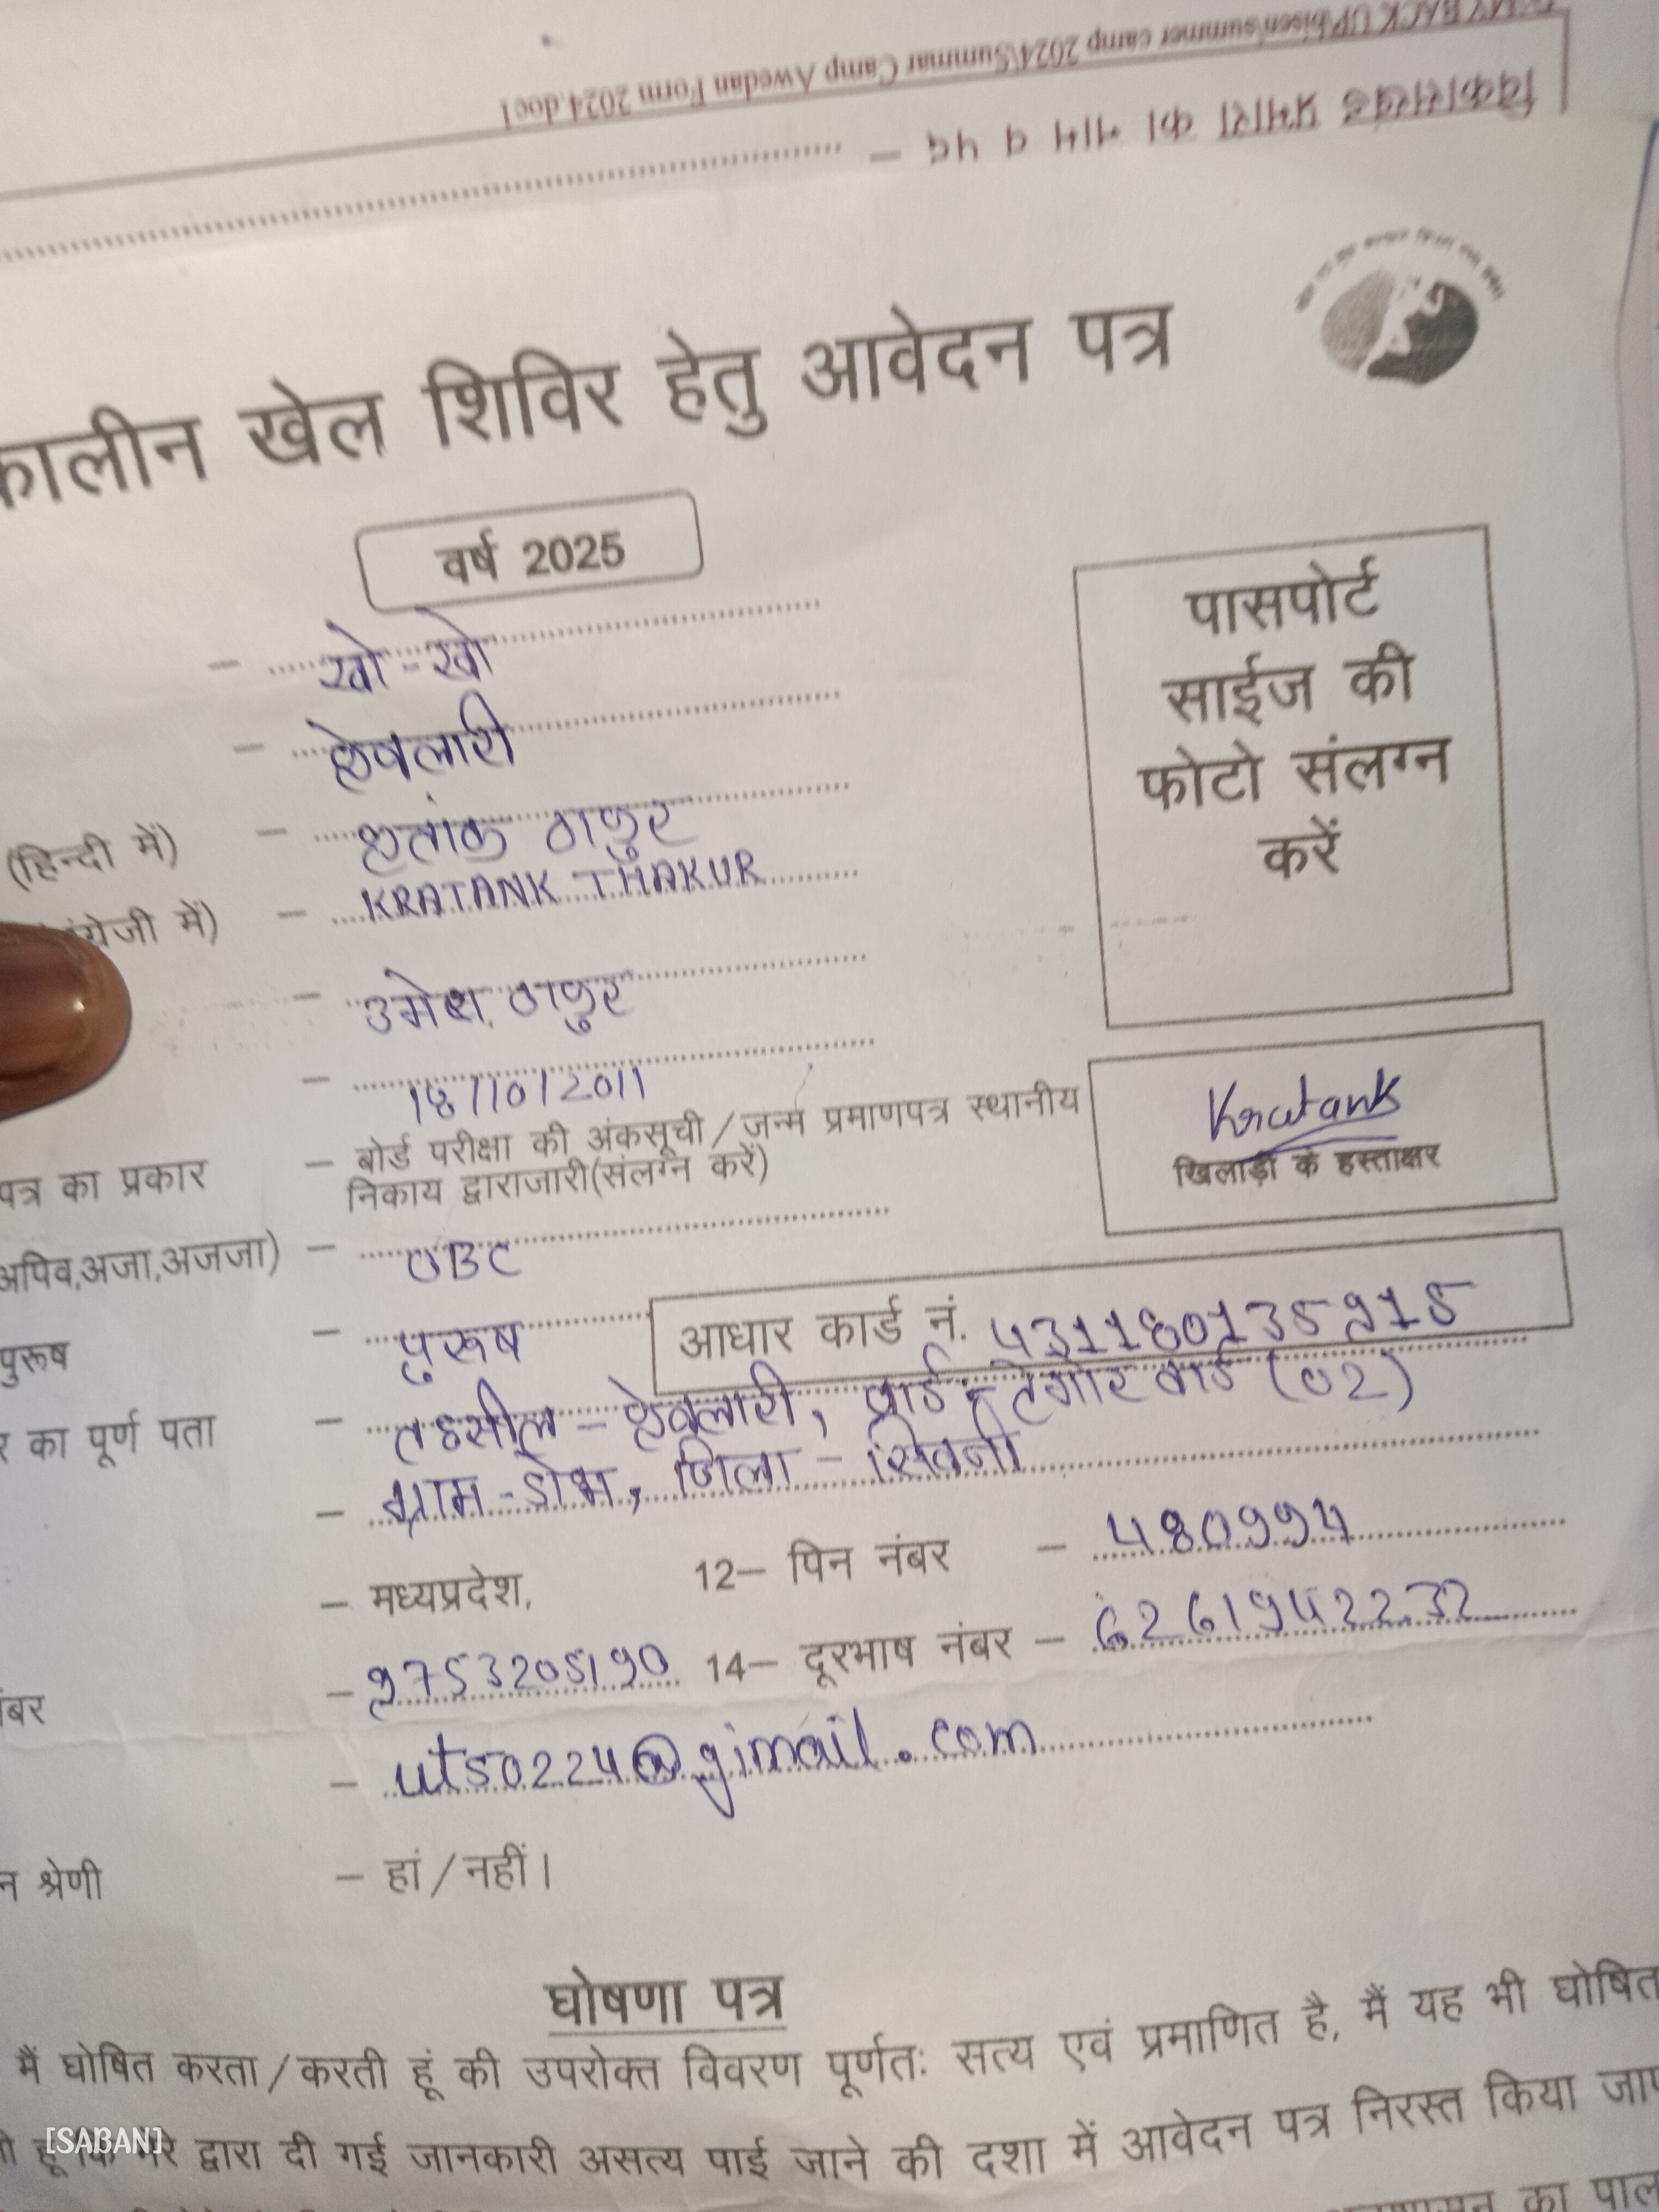 BACK UP\bisen\summer camp 2024\Summar Camp Awedan Form 2024.doc1
विकासखंड प्रभारी का नाम व पद –
कालीन खेल शिविर हेतु आवेदन पत्र
वर्ष 2025
पासपोर्ट
साईज की
फोटो संलग्न
करें
– खो-खो
– केवलारी
(हिन्दी में) – कृतांक ठाकुर
अंग्रेजी में) – KRATANK THAKUR
– उमेश ठाकुर
– 18/10/2011
Kratank
खिलाड़ी के हस्ताक्षर
पत्र का प्रकार – बोर्ड परीक्षा की अंकसूची/जन्म प्रमाणपत्र स्थानीय
निकाय द्वाराजारी(संलग्न करें)
अपिव,अजा,अजजा) – OBC
पुरूष – पुरूष
आधार कार्ड नं.
र का पूर्ण पता – तहसील – केवलारी, वार्ड – टेगोर वार्ड (02)
– ग्राम - डोभ, जिला – सिवनी
– मध्यप्रदेश, 12– पिन नंबर – 480994
नंबर – 9753205190 14– दूरभाष नंबर – 6261942232
– uts0224@gimail.com
न श्रेणी – हां/नहीं।
घोषणा पत्र
मैं घोषित करता/करती हूं की उपरोक्त विवरण पूर्णतः सत्य एवं प्रमाणित है, मैं यह भी घोषित
हूं कि मेरे द्वारा दी गई जानकारी असत्य पाई जाने की दशा में आवेदन पत्र निरस्त किया जाए
का पाल
[SABAN]